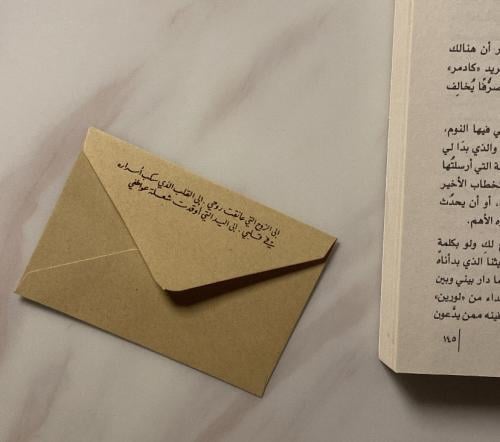 إلى الروح التي عانقت روحي . إلى القلب الذي سكب أسراره
في قلبي . إلى اليد التي أوقدت شعلة عواطفي
ر أن هنالك
ريد «كادمر»
صرُّفًا يُخالِف
ي فيها النوم،
والذي بدَا لي
ة التي أرسلتُها
خطاب الأخير
، أو أن يحدُث
ره الأهم.
لكِ ولو بكلمة
يثنا الذي بدأناهُ
ما دار بيني وبين
داء من «لورين»
فينه ممن يدَّعون
١٤٥